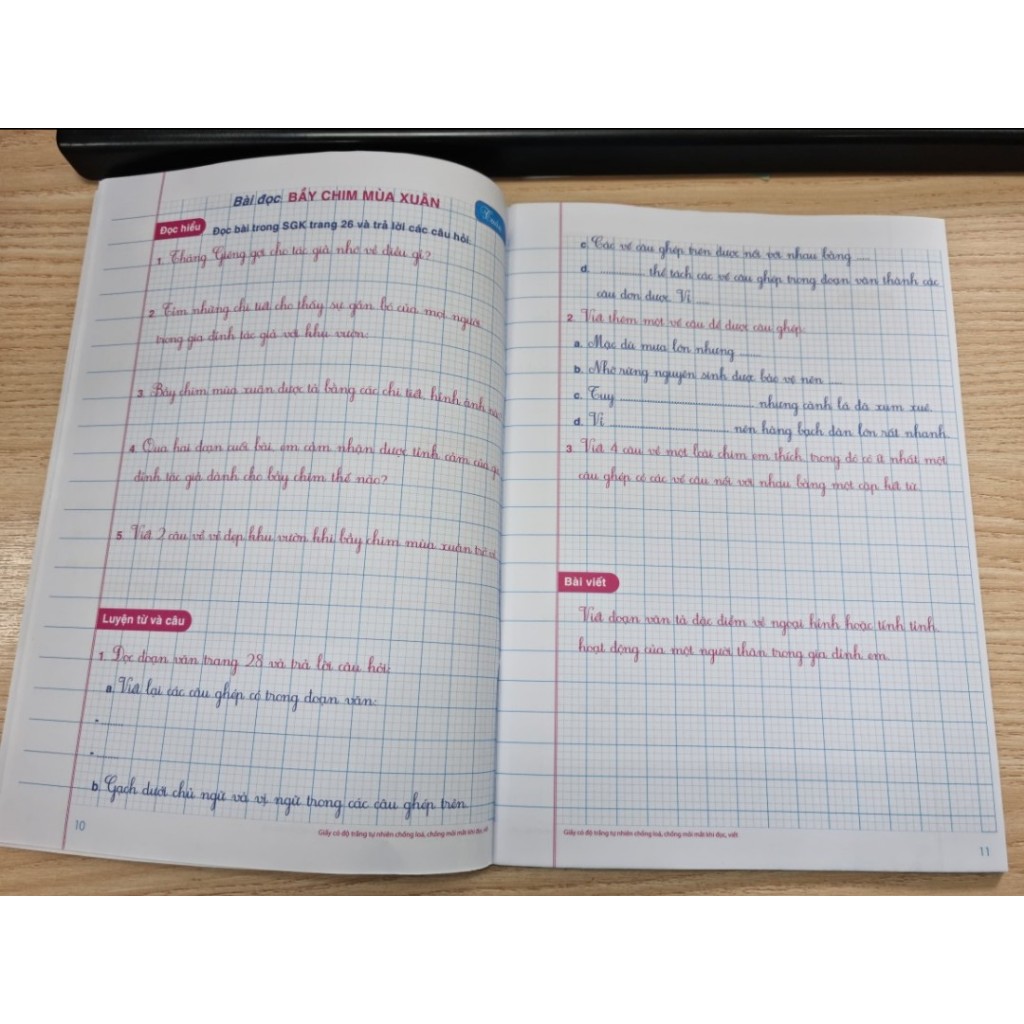 Bài đọc BẦY CHIM MÙA XUÂN
Đọc hiểu Đọc bài trong SGK trang 26 và trả lời các câu hỏi.
1. Tháng Giêng gợi cho tác giả nhớ về điều gì?
2. Tìm những chi tiết cho thấy sự gắn bó của mọi người
trong gia đình tác giả với khu vườn.
3. Bầy chim mùa xuân được tả bằng các chi tiết, hình ảnh
4. Qua hai đoạn cuối bài, em cảm nhận được tình cảm của
đình tác giả dành cho bầy chim thế nào?
5. Viết 2 câu về vẻ đẹp khu vườn khi bầy chim mùa xuân
Luyện từ và câu
1. Đọc đoạn văn trang 28 và trả lời câu hỏi:
a. Viết lại các câu ghép có trong đoạn văn:
- ........
- ........
b. Gạch dưới chủ ngữ và vị ngữ trong các câu ghép trên.
10
Giấy có độ trắng tự nhiên chống loá, chống mỏi mắt khi đọc, viết
c. Các vế câu ghép trên được nối với nhau bằng ....
d. .................. thể tách các vế câu ghép trong đoạn văn thành các
câu đơn được. Vì ....
2. Viết thêm một vế câu để được câu ghép:
a. Mặc dù mưa lớn nhưng ......
b. Nhờ rừng nguyên sinh được bảo vệ nên ....
c. Tuy ................................ nhưng cành lá đã xum xuê.
d. Vì ................................ nên hàng bạch đàn lớn rất nhanh.
3. Viết 4 câu về một loài chim em thích, trong đó có ít nhất một
câu ghép có các vế câu nối với nhau bằng một cặp kết từ.
Bài viết
Viết đoạn văn tả đặc điểm về ngoại hình hoặc tính tình,
hoạt động của một người thân trong gia đình em.
Giấy có độ trắng tự nhiên chống loá, chống mỏi mắt khi đọc, viết
11